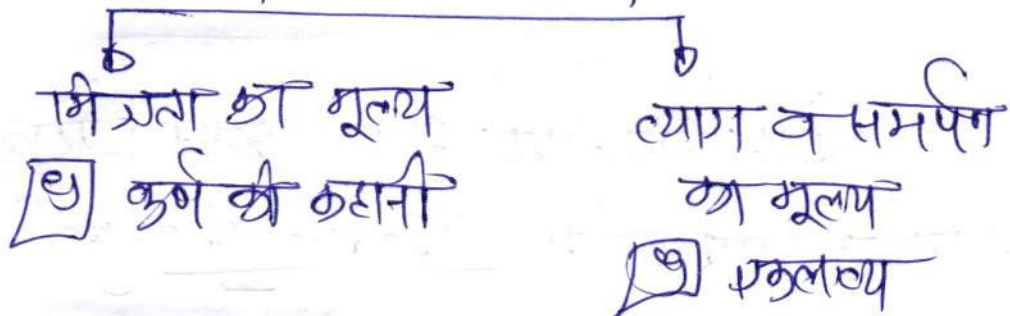 मित्रता का मूल्य
eg कर्ण की कहानी
त्याग व समर्पण
का मूल्य
eg एकलव्य